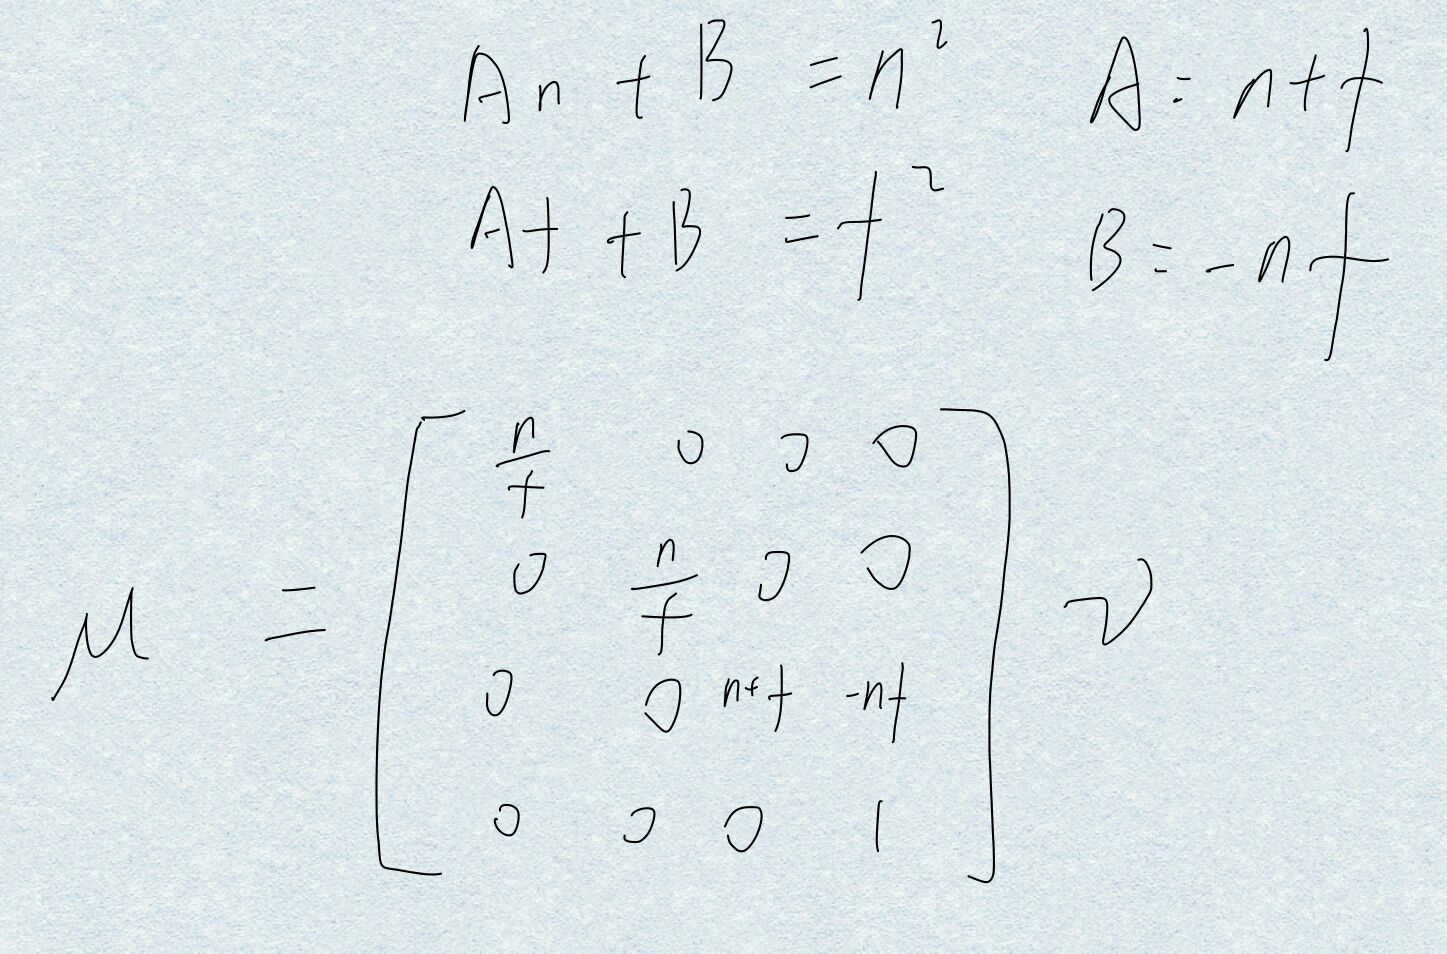 An + B = n² A = n+f
Af + B = f² B = -nf
n/f 0 0 0
0 n/f 0 0
M = v
0 0 n+f -nf
0 0 0 1